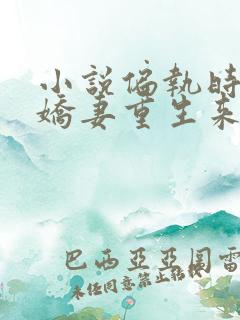 小說偏執時
嬌妻重生來
巴西亞亞圖雷
未任同意禁止轉載